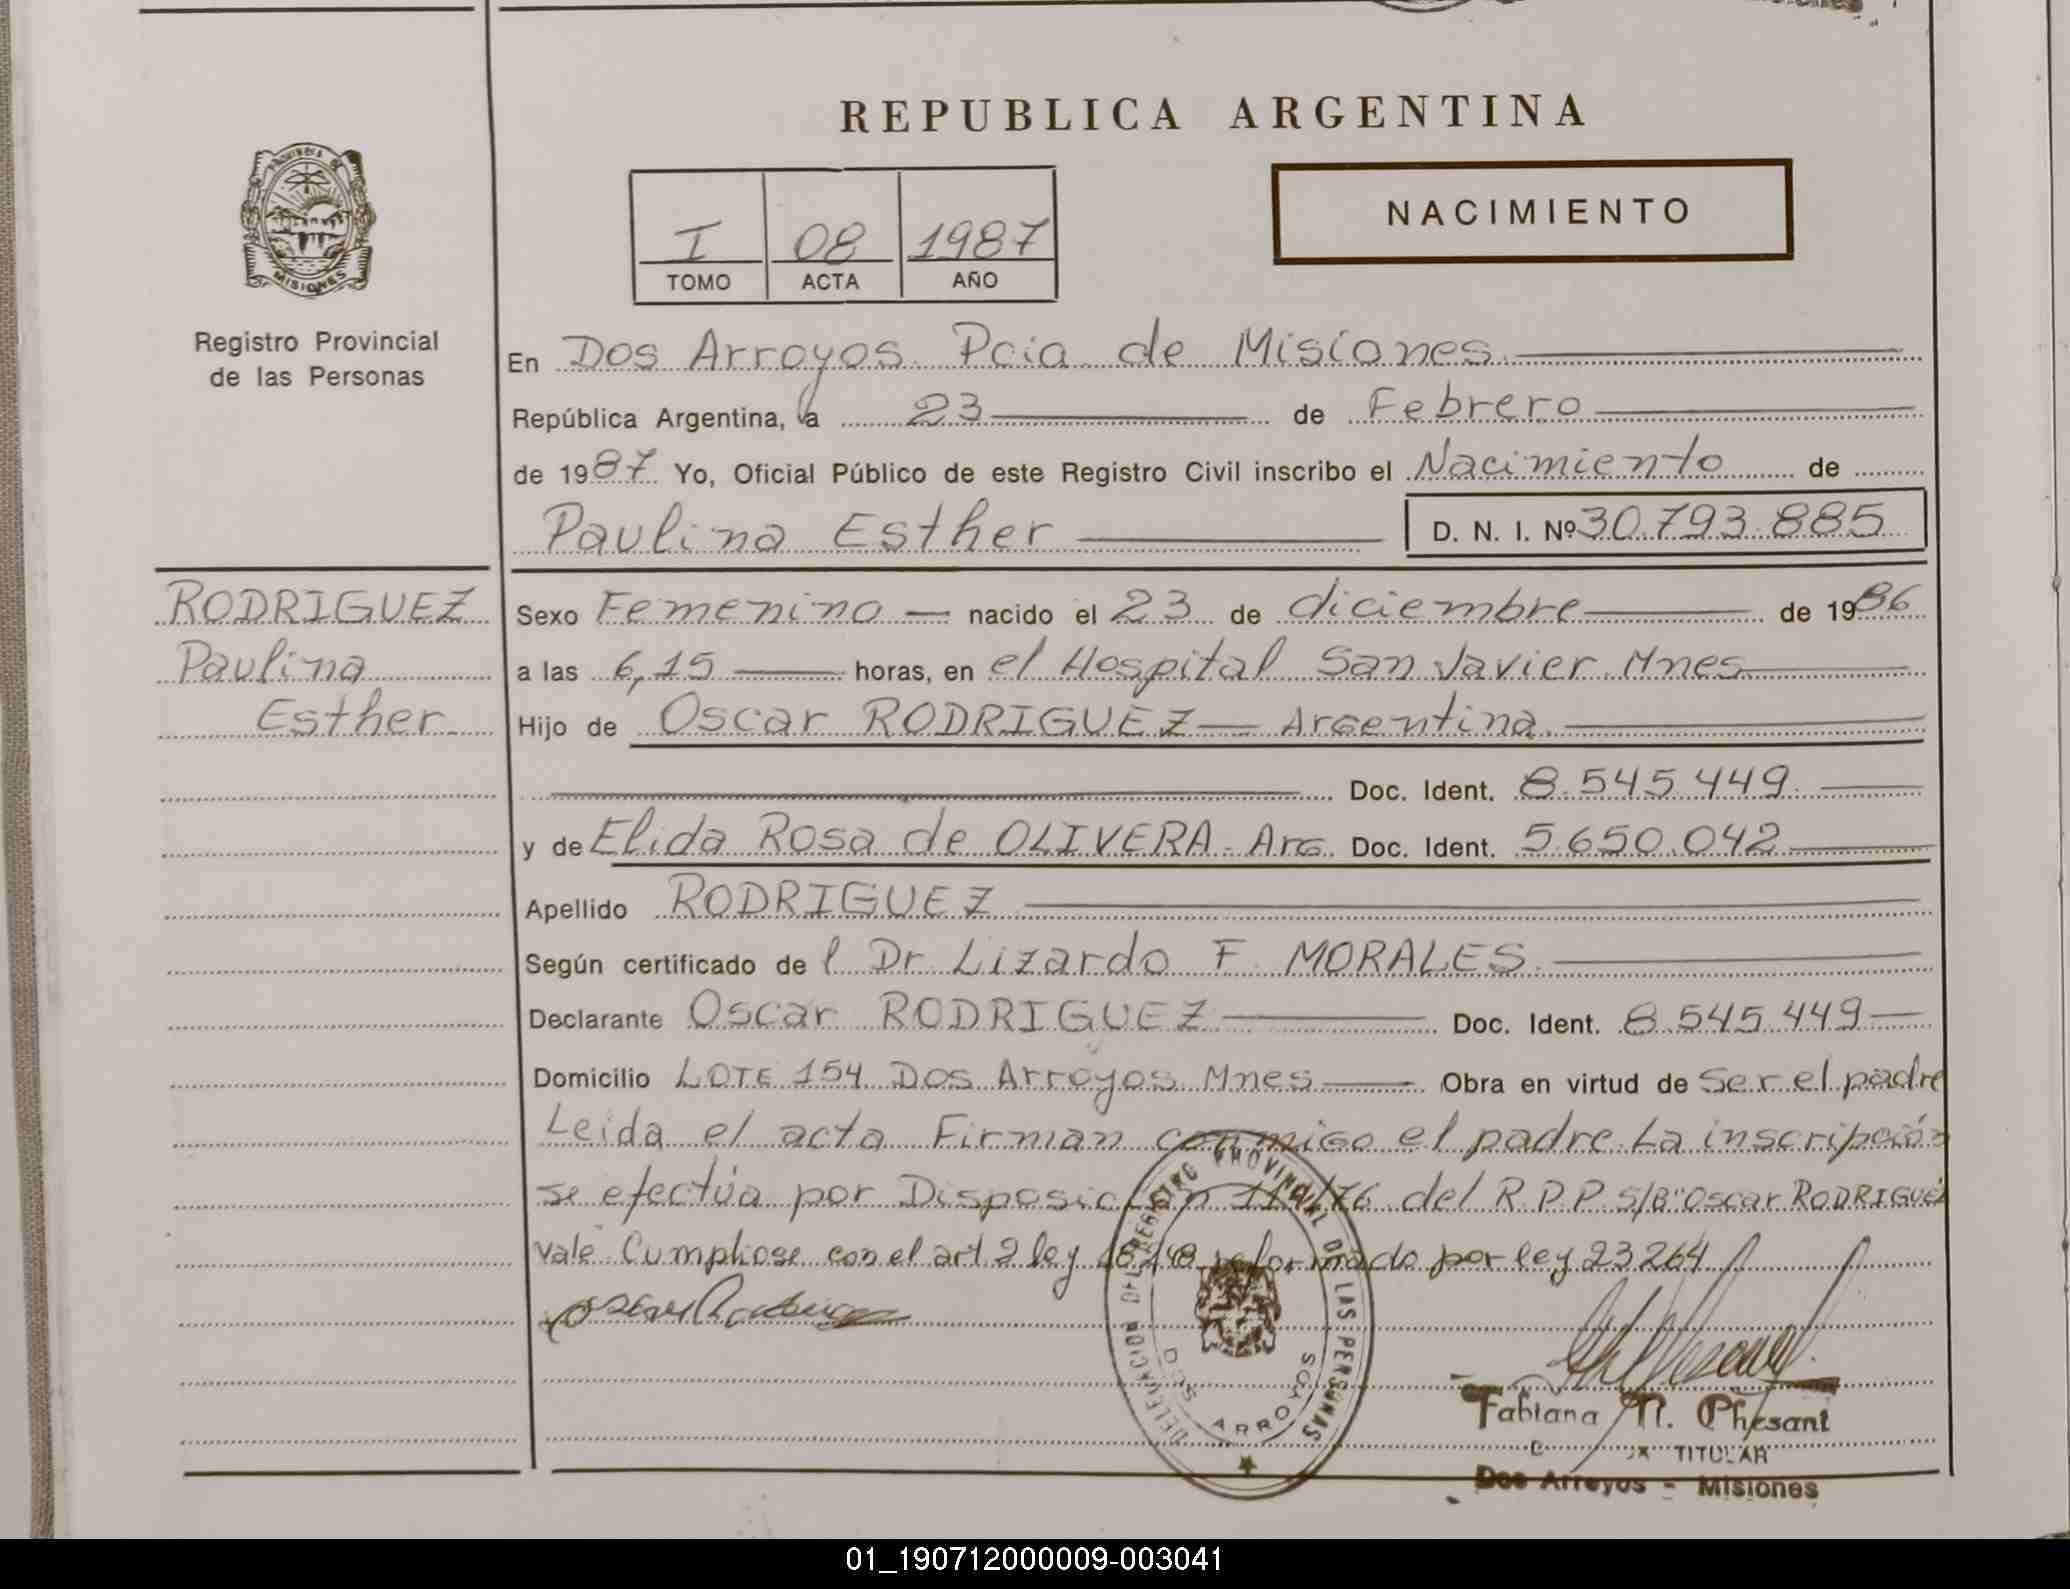 REPUBLICA ARGENTINA
PROVINCIA DE
MISIONES
Registro Provincial
de las Personas
I 08 1987
TOMO ACTA AÑO
NACIMIENTO
En Dos Arroyos Pcia de Misiones
República Argentina, a 23 de Febrero
de 1987 Yo, Oficial Público de este Registro Civil inscribo el Nacimiento de
Paulina Esther D. N. I. Nº 30.793.885
RODRIGUEZ
Paulina
Esther
Sexo Femenino nacido el 23 de diciembre de 1986
a las 6,15 horas, en el Hospital San Javier Mnes
Hijo de Oscar RODRIGUEZ — Argentina
Doc. Ident. 8.545.449
y de Elida Rosa de OLIVERA - Arg. Doc. Ident. 5.650.042
Apellido RODRIGUEZ
Según certificado de l Dr Lizardo F. MORALES
Declarante Oscar RODRIGUEZ Doc. Ident. 8.545.449
Domicilio LOTE 154 Dos Arroyos Mnes Obra en virtud de ser el padre
Leida el acta Firman conmigo el padre. La inscripción
se efectúa por Disposición del R.P.P. S/B" Oscar RODRIGUEZ
Vale. Cumpliose con el art 2 ley 18248 reformado por ley 23264
DELEGACION DEL REGISTRO PROVINCIAL DE LAS PERSONAS
DOS ARROYOS
Fabiana N. Phesant
TITULAR
Dos Arroyos - Misiones
01_190712000009-003041